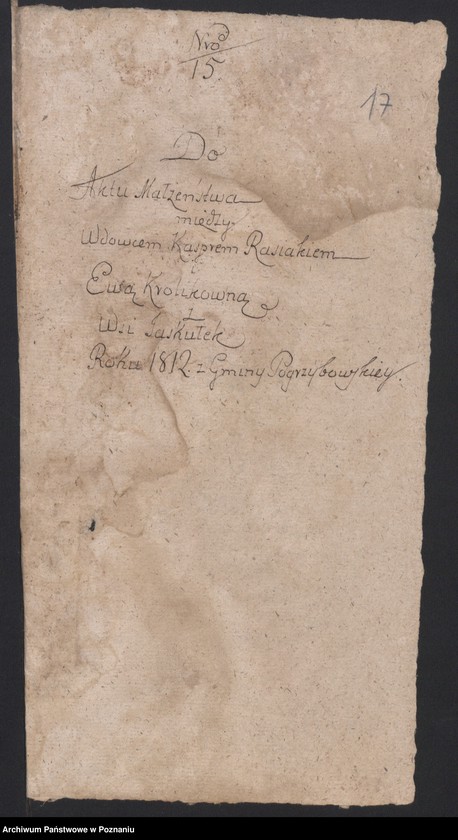 Nro
15
17
Do
Aktu Małżeństwa
między
Wdowcem Kasprem Rasiakiem
Ewą Krolikowną
z
Wsi Jaskułek
Roku 1812. z Gminy Pogrzybowskiey.
Archiwum Państwowe w Poznaniu